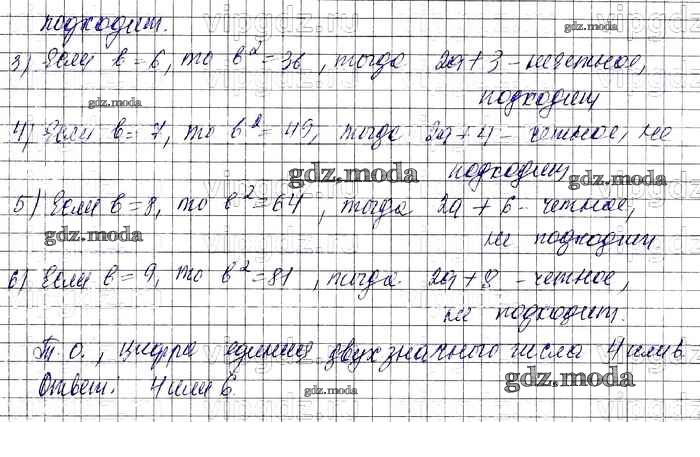 подходит.
3) Если b = 6, то b² = 36, тогда 2a + 3 - нечетное,
подходит
4) Если b = 7, то b² = 49, тогда 2a + 4 - четное, не
подходит
5) Если b = 8, то b² = 64, тогда 2a + 6 - четное,
не подходит.
6) Если b = 9, то b² = 81, тогда 2a + 8 - четное,
не подходит.
Т. о., цифра единиц двухзначного числа 4 или 6.
Ответ. 4 или 6.
gdz.moda
gdz.moda
gdz.moda
gdz.moda
gdz.moda
gdz.moda
gdz.moda